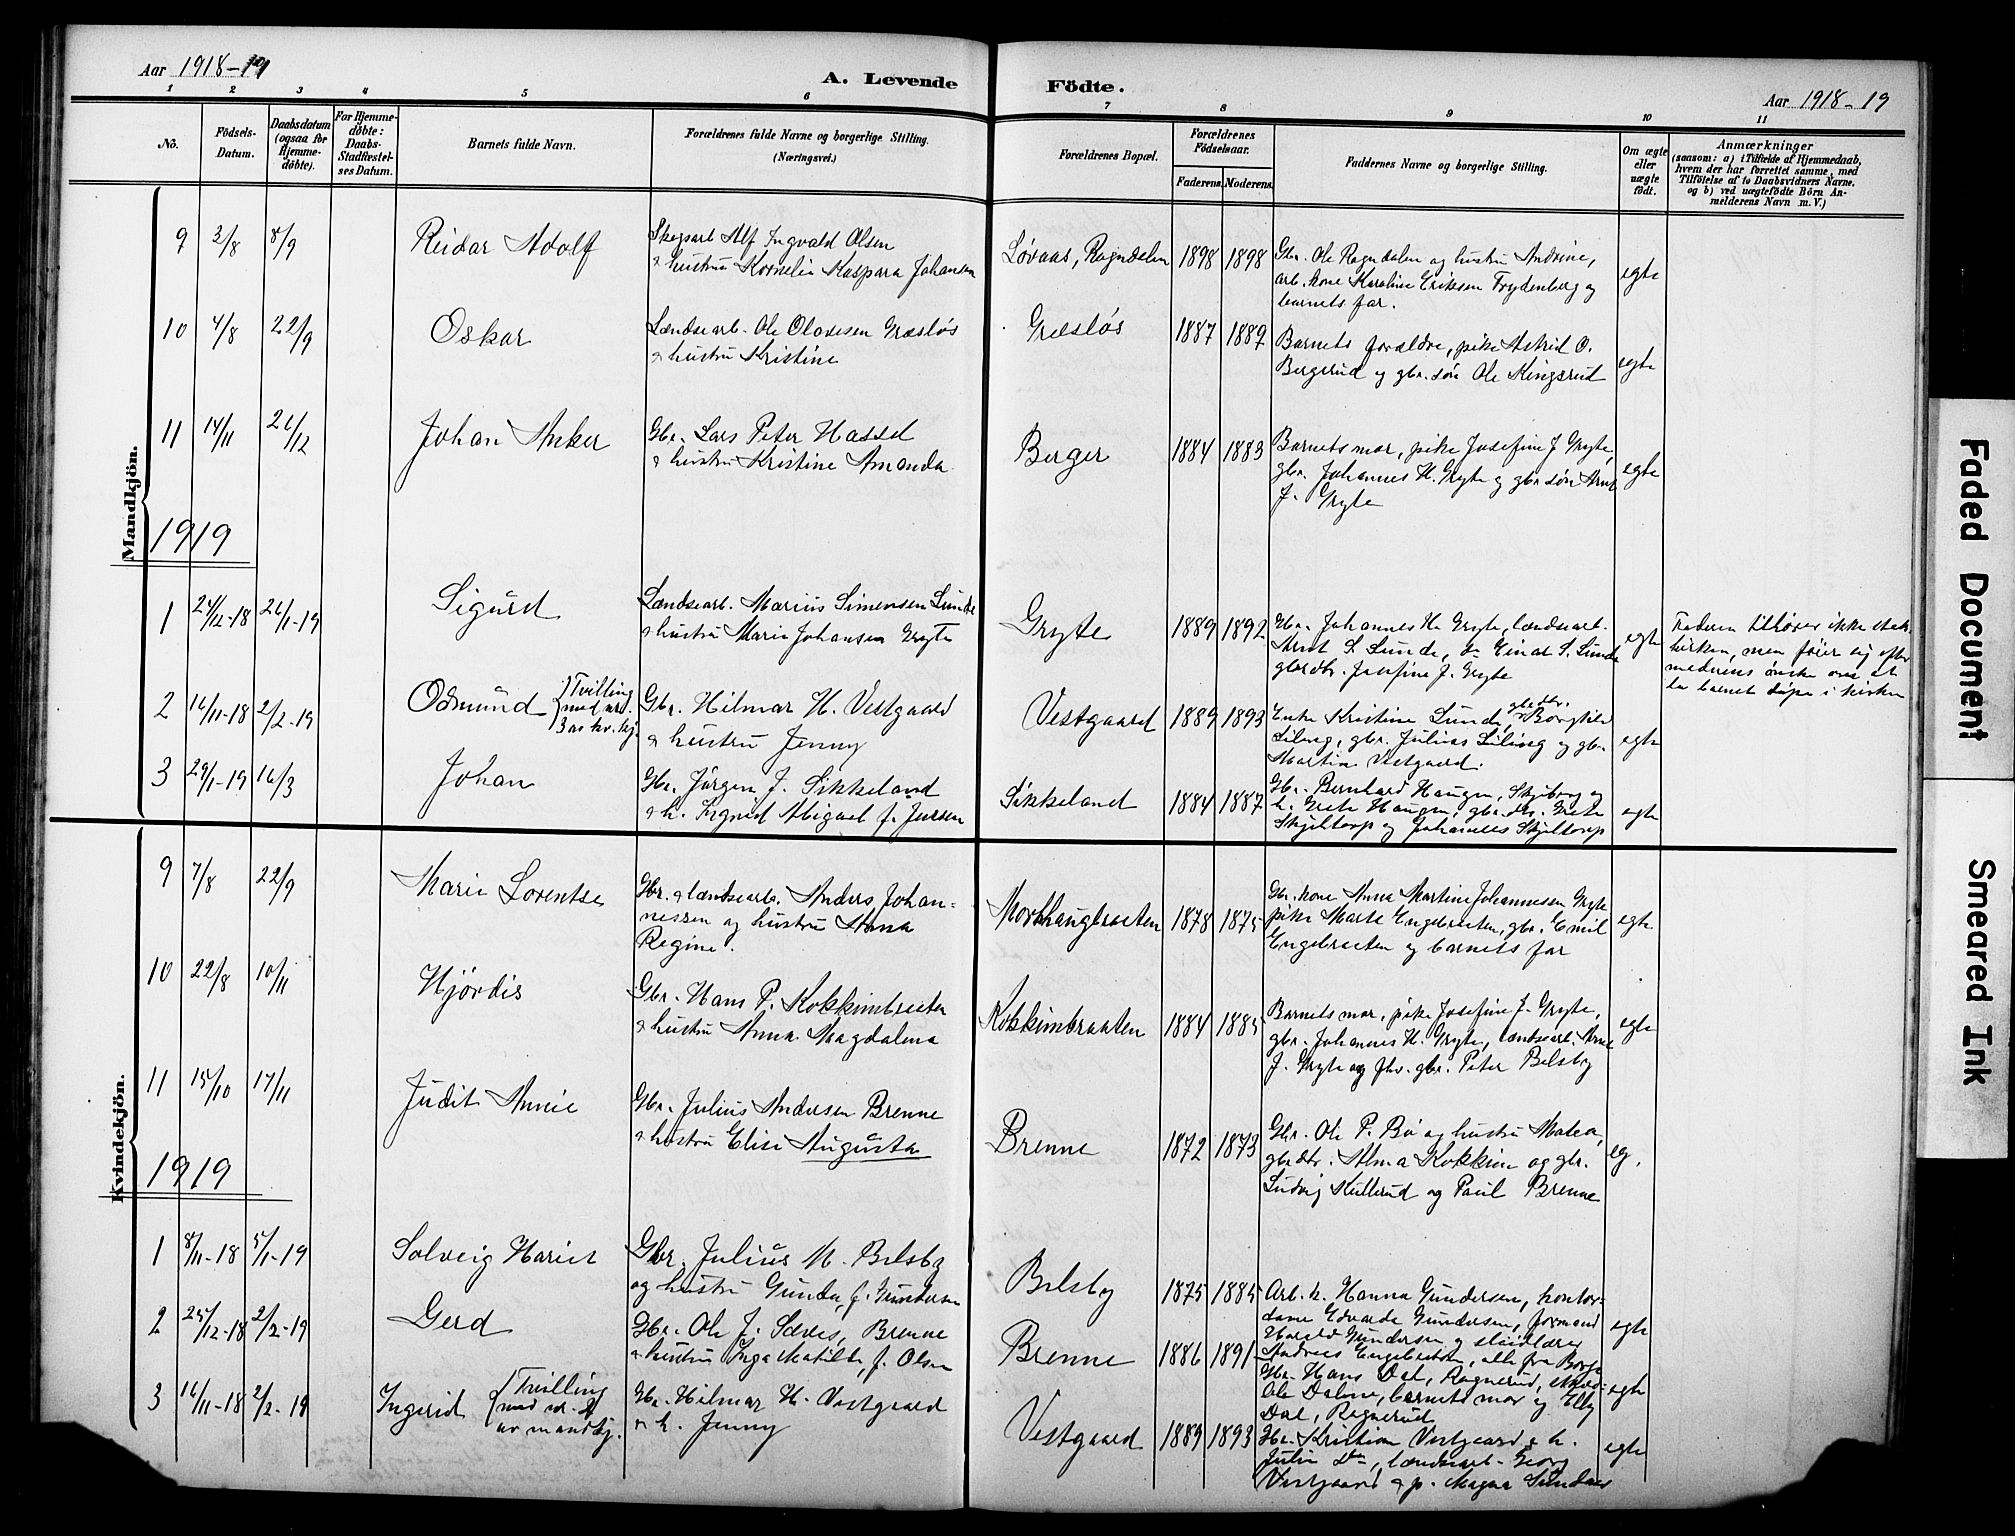 Aar 1918-19
A. Levende Födte.
Aar 1918-19
1 2 3 4 5 6 7 8 9 10 11
No.
Födsels-
Datum.
Daabsdatum
(ogsaa for
Hjemme-
döbte).
For Hjemme-
döbte:
Daabs-
Stadfæstel-
ses Datum.
Barnets fulde Navn.
Forældrenes fulde Navne og borgerlige Stilling.
(Næringsvei.)
Forældrenes Bopæl.
Forældrenes
Födselsaar.
Faderens. Moderens.
Faddernes Navne og borgerlige Stilling.
Om ægte
eller
uægte
födt.
Anmærkninger
(saasom: a) i Tilfælde af Hjemmedaab,
hvem der har forrettet samme, med
Tilföielse af to Daabsvidners Navne.
og b) ved uægtefödte Börn An-
melderens Navn m. V.)
Mandkjön.
9 3/8 8/9 Reidar Adolf
Skogsarb. Alf Ingvald Olsen
& hustru Kornelia Kaspara Johansen
Løvaas, Rogndalen 1898 1898
Gbr. Ole Rogndalen og hustru Andrine,
arb. kone Karoline Eriksen Frydenberg og
barnets far.
egte
10 4/8 22/9 Oskar
Lændsearb. Ole Olavesen Græsløs
& hustru Kristine
Græsløs 1887 1889
Barnets forældre, pike Astrid O.
Bergerud og gbr. søn Ole Kingsrud
egte
11 14/11 26/12 Johan Anker
Gbr. Lars Peter Hassel
& hustru Kristine Amanda
Berger 1884 1883
Barnets mor, pike Josefine J Gryte,
gbr. Johannes H. Gryte og gbr. søn Arnt
J. Gryte
egte
1919
1 24/12-18 26/1-19 Sigurd
Lændsearb. Marius Simensen Lunde
& hustru Marie Johansen Gryte
Gryte 1889 1892
Gbr. Johannes H. Gryte, lændsearb.
Arnt S. Lunde, do Einar S. Lunde
gbrdtr. Josefine J. Gryte
egte
Faderen tilhører ikke stats-
kirken, men føier sig efter
moderens ønske om at
la barnet døpe i kirken
2 16/11-18 2/2-19 Odmund {Tvilling
med nr.
3 as kv. kj.
Gbr. Hilmar H. Vestgaard
& hustru Jenny
Vestgaard 1889 1893
Enke Kristine Lunde, gbrdtr. Borghild
Liling, gbr. Julius Liling og gbr.
Martin Vestgaard.
egte
3 29/1-19 16/3 Johan
Gbr. Jørgen J. Sikkeland
& h. Ingrid Abigael f. Jensen
Sikkeland 1884 1887
Gbr. Bernhard Haugen, Skjeberg og
h. Grete Haugen, gbr. dtr. Grete
Skjeltorp og Johannes Skjeltorp
egte
Kvindekjön.
9 7/8 22/9 Marie Lorentse
Gbr. & lændsearb. Anders Johan-
nessen og hustru Anna
Regine.
Morkhaugbraaten 1878 1875
Gbr. kone Anna Martine Johannesen Gryte
pike Marte Engebraaten, gbr. Emil
Engebraaten og barnets far
egte
10 22/8 10/11 Hjørdis
Gbr. Hans P. Kokkimbraaten
& hustru Anna Magdalena
Kokkimbraaten 1884 1885
Barnets mor, pike Josefine J. Gryte,
gbr. Johannes H. Gryte, lændsearb. Arnt
J. Gryte og fhv. gbr. Peter Bilsby
egte
11 15/10 17/11 Judit Annie
Gbr. Julius Andersen Brenne
& hustru Elise Augusta
Brenne 1872 1873
Gbr. Ole P. Bø og hustru Matea,
gbrdtr. Alma Kokkim og gbr.
Ludvig Kullerud og Paul Brenne
eg.
1919
1 8/11-18 5/1-19 Solveig Hariet
Gbr. Julius M. Bilsby
og hustru Gunda, f. Gundersen
Bilsby 1875 1885
Arb. h. Hanna Gundersen, kontor-
dame Edvarda Gundersen, formand
Harald Gundersen og
Andreas Engebretsen, alle fra Borge
egte
2 25/12-18 2/2-19 Gerd
Gbr. Ole J. Sæves, Brenne
& hustru Inga Matilde, f. Olsen
Brenne 1886 1891
Gbr. Hans Dal, Rognerud,
Ole Dalene, barnets mor og Elly
Dal, Rognerud
egte
3 16/11-18 2/2-19 Ingerid {Tvilling
med nr. 2
av mandkj.
Gbr. Hilmar H. Vestgaard
& h. Jenny
Vestgaard 1889 1893
Gbr. Kristian Vestgaard & h.
Julie Do, lændsearb. Georg
Vestgaard & p. Magna Sundaas
egte
Faded Document
Smeared Ink